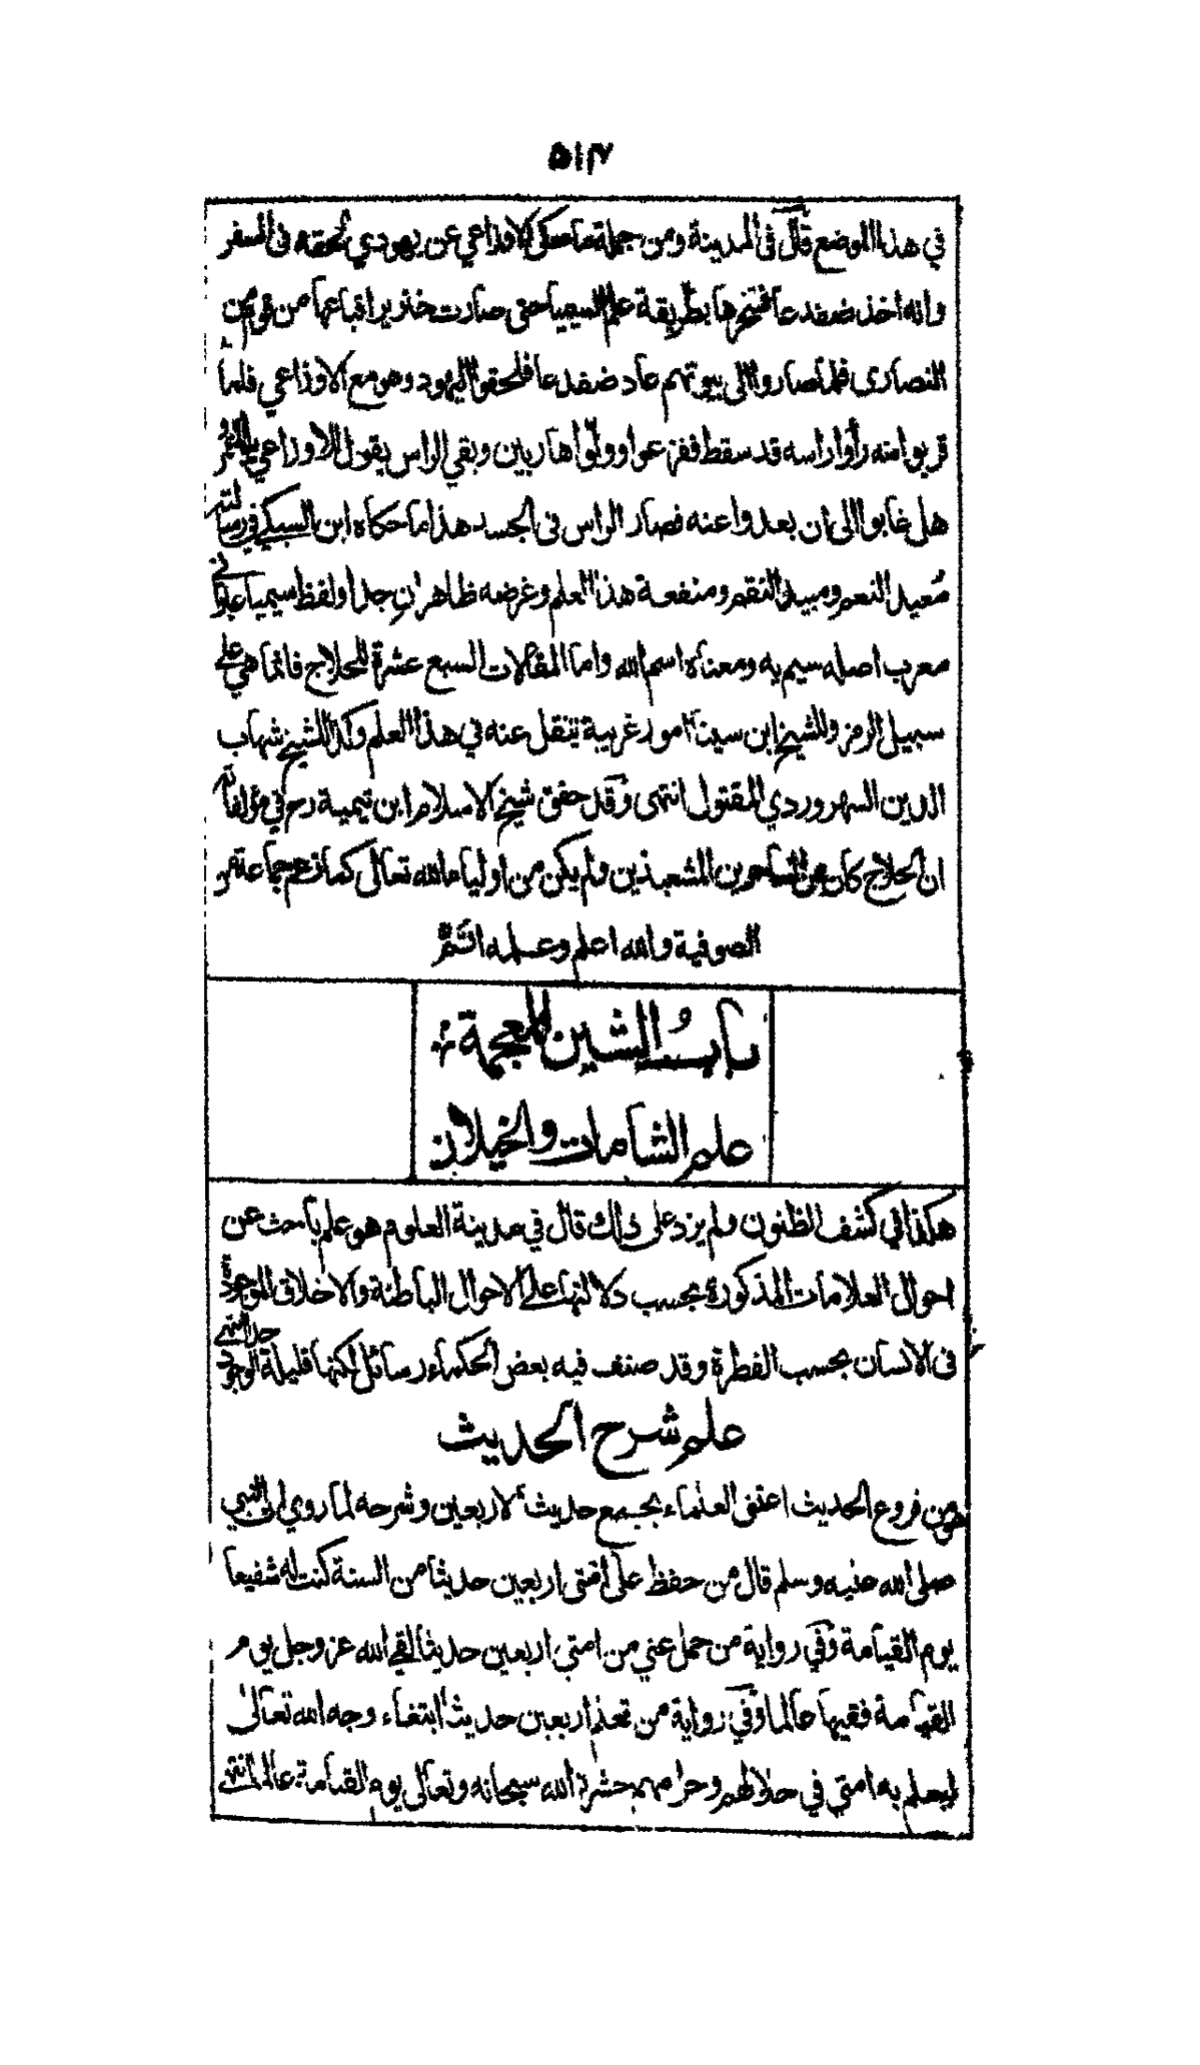 ٥١٧
في هذا الموضع قال فى المدينة ومن جملة ما حكى الاوزاعي عن يهودي لحقه فى السفر
وانه اخذ ضفدعا فسخرها بطريقة علم السيميا حتى صارت خنزيرا فباعها من قوم من
النصارى فلما صاروا الى بيوتهم عاد ضفدعا فلحقوا اليهود وهو مع الاوزاعي فلما
قربوا منه رأوا راسه قد سقط ففزعوا وولوا هاربين وبقي الراس يقول للاوزاعي يا ابا عمرو
هل غابوا الى ان بعدوا عنه فصار الراس فى الجسد هذا ما حكاه ابن السبكي في رسالته
مُعيد النعم ومبيد النقم ومنفعة هذا العلم وغرضه ظاهران جدا ولفظ سيميا عبراني
معرب اصله سيم يه ومعناه اسم الله واما المقالات السبع عشرة للحلاج فانما هي على
سبيل الرمز وللشيخ ابن سينا امور غريبة تنقل عنه في هذا العلم وكذا للشيخ شهاب
الدين السهروردي المقتول انتهى وقد حقق شيخ الاسلام ابن تيمية رح في مؤلفاته
ان الحلاج كان من الساحرين المشعبذين ولم يكن من اولياء الله تعالى كما زعم جماعة من
الصوفية والله اعلم وعلمه اتم
بابُ الشين المعجمة
علم الشامات والخيلان
هكذا في كشف الظنون ولم يزد على ذلك قال في مدينة العلوم هو علم باحث عن
احوال العلامات المذكورة بحسب دلالتها على الاحوال الباطنة والاخلاق الموجودة
فى الانسان بحسب الفطرة وقد صنف فيه بعض الحكماء رسائل لكنها قليلة الوجود جدا انتهى
علم شرح الحديث
هو من فروع الحديث اعتنى العلماء بجمع حديث الاربعين وشرحه لما روي ان النبي
صلى الله عليه وسلم قال من حفظ على امتى اربعين حديثا من السنة كنت له شفيعا
يوم القيامة وفي رواية من حمل عني من امتي اربعين حديثا لقي الله عز وجل يوم
القيامة فقيها عالما وفي رواية من تعلم اربعين حديثا ابتغاء وجه الله تعالى
ليعلم به امتي في حلالهم وحرامهم حشره الله سبحانه وتعالى يوم القيامة عالما انتهى